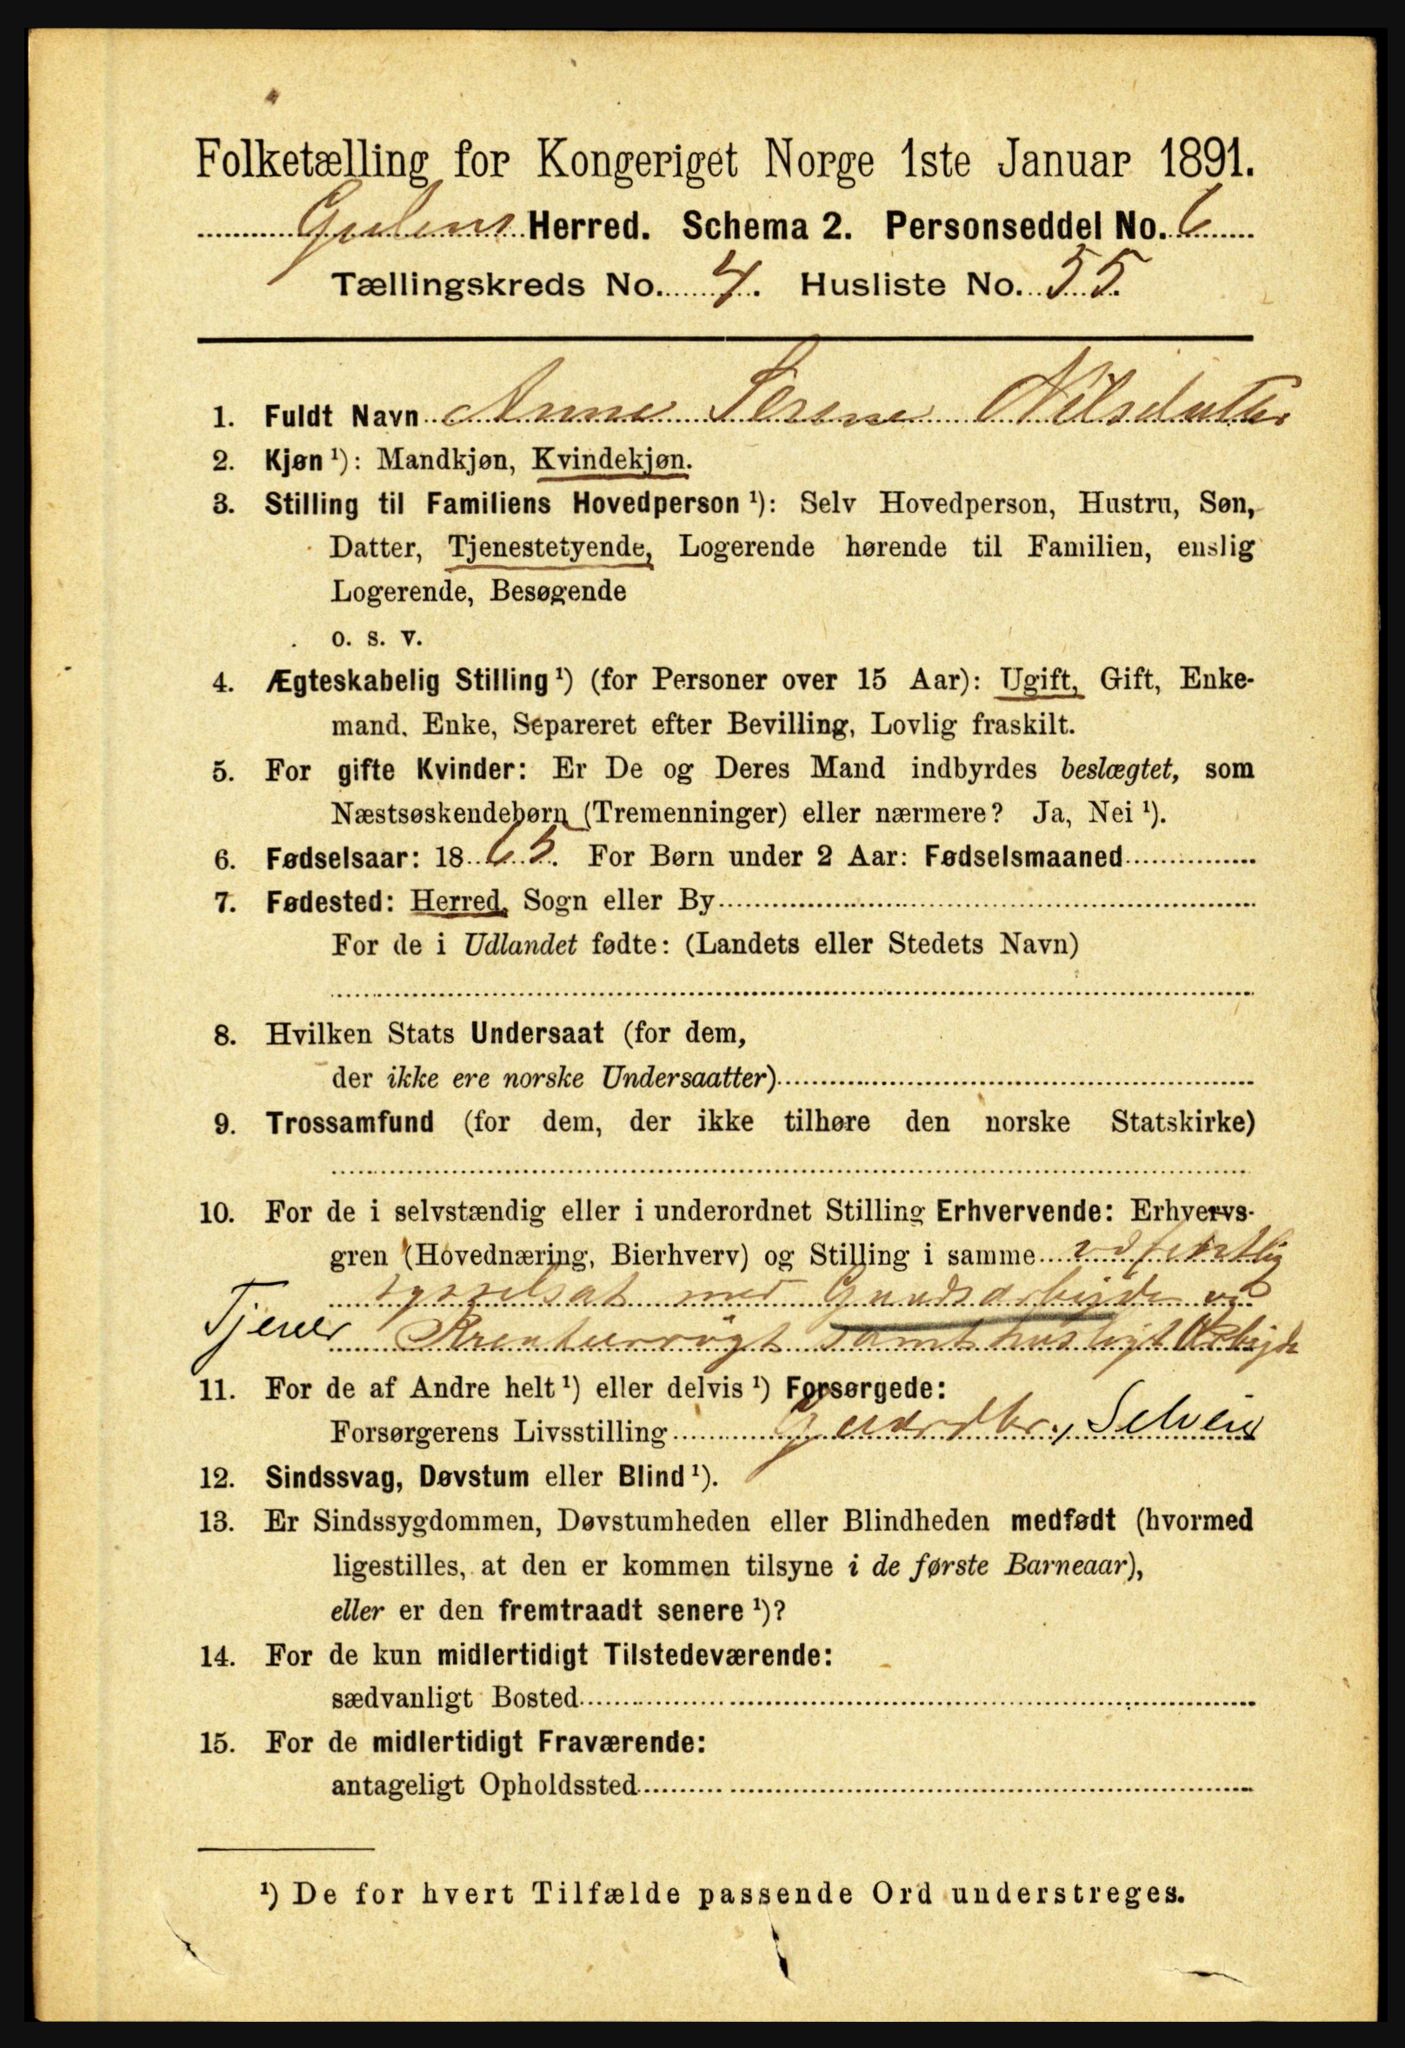 Folketælling for Kongeriget Norge 1ste Januar 1891.
Gulens Herred. Schema 2. Personseddel No. 6
Tællingskreds No. 4. Husliste No. 55.
1. Fuldt Navn Anne Serene Nilsdatter
2. Kjøn ¹): Mandkjøn, Kvindekjøn.
3. Stilling til Familiens Hovedperson ¹): Selv Hovedperson, Hustru, Søn,
Datter, Tjenestetyende, Logerende hørende til Familien, enslig
Logerende, Besøgende
o. s. v.
4. Ægteskabelig Stilling ¹) (for Personer over 15 Aar): Ugift, Gift, Enke-
mand, Enke, Separeret efter Bevilling, Lovlig fraskilt.
5. For gifte Kvinder: Er De og Deres Mand indbyrdes beslægtet, som
Næstsøskendebørn (Tremenninger) eller nærmere? Ja, Nei ¹).
6. Fødselsaar: 1865. For Børn under 2 Aar: Fødselsmaaned
7. Fødested: Herred, Sogn eller By
For de i Udlandet fødte: (Landets eller Stedets Navn)
8. Hvilken Stats Undersaat (for dem,
der ikke ere norske Undersaatter)
9. Trossamfund (for dem, der ikke tilhøre den norske Statskirke)
10. For de i selvstændig eller i underordnet Stilling Erhvervende: Erhvervs-
gren (Hovednæring, Bierhverv) og Stilling i samme
sysselsat med Gaardsarbejde og
Tjener Kreaturrøgt samt husligt Arbejde
11. For de af Andre helt ¹) eller delvis ¹) Forsørgede:
Forsørgerens Livsstilling Gaardbr., Selveier
12. Sindssvag, Døvstum eller Blind ¹).
13. Er Sindssygdommen, Døvstumheden eller Blindheden medfødt (hvormed
ligestilles, at den er kommen tilsyne i de første Barneaar),
eller er den fremtraadt senere ¹)?
14. For de kun midlertidigt Tilstedeværende:
sædvanligt Bosted
15. For de midlertidigt Fraværende:
antageligt Opholdssted
¹) De for hvert Tilfælde passende Ord understreges.